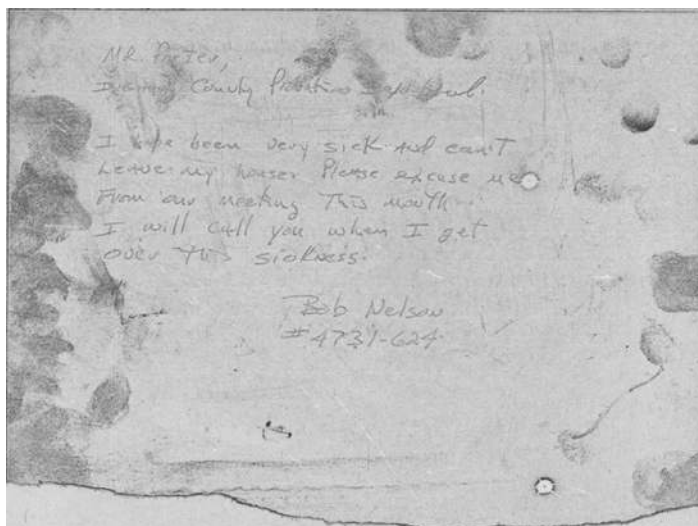 Mr. Porter,
County
I have been very sick and can't
Leave my house. Please excuse me
From our meeting This month
I will call you when I get
over This sickness.
Bob Nelson
#4731-624